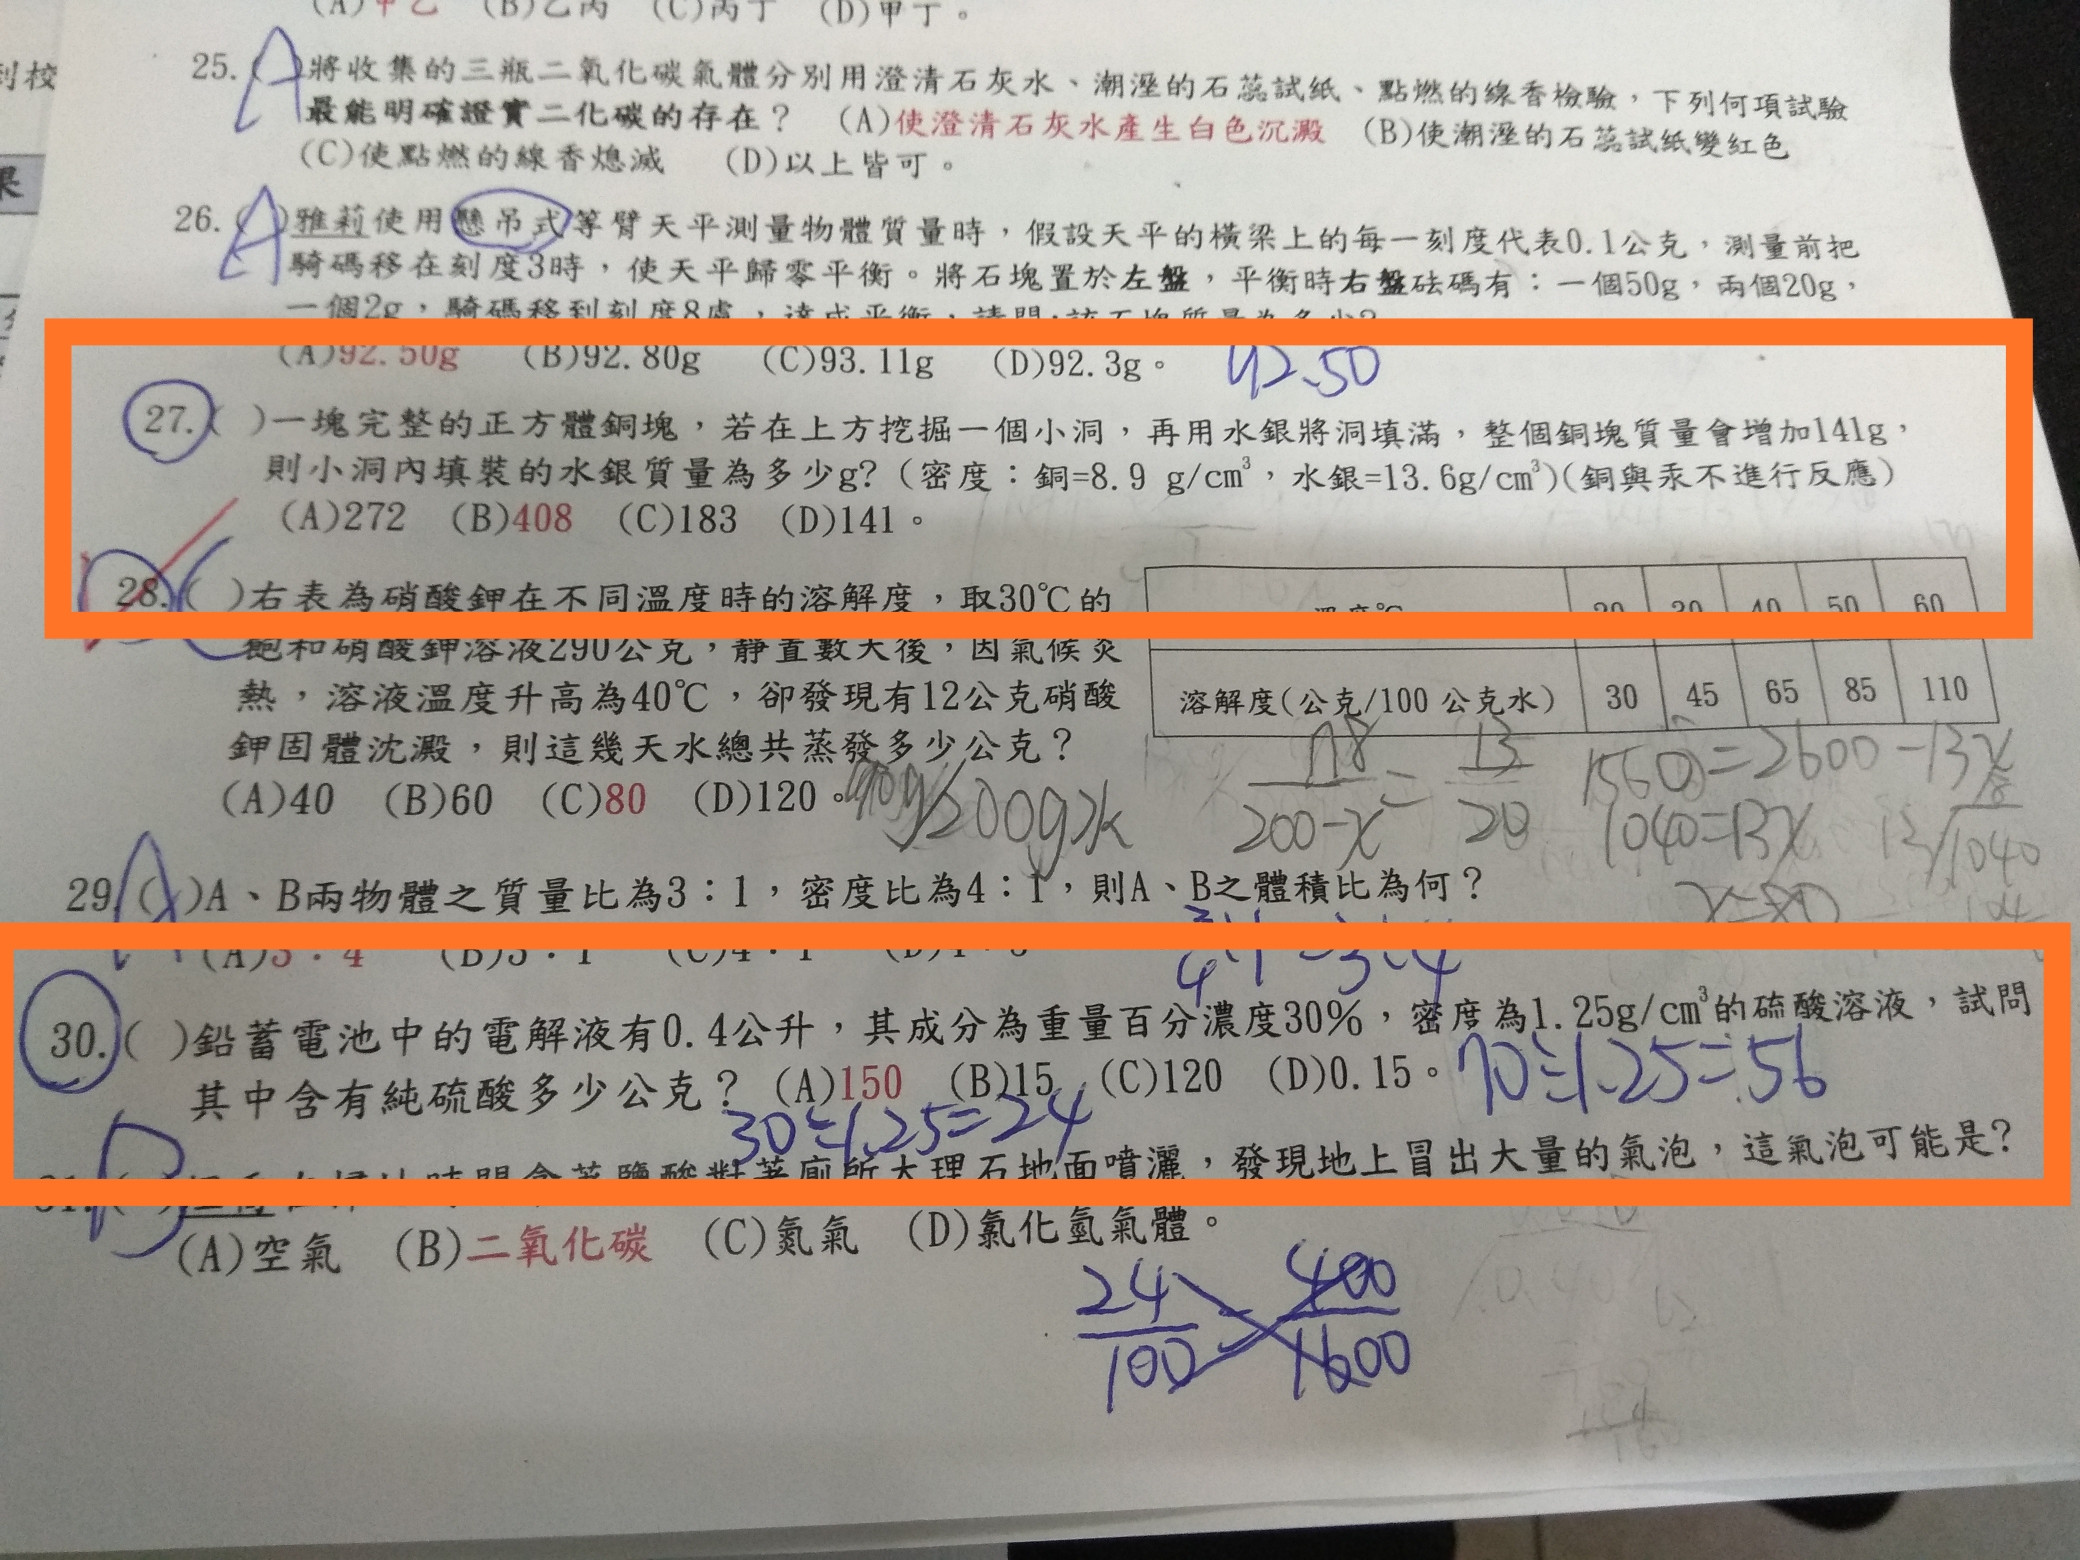 (A)甲乙 (B)乙丙 (C)丙丁 (D)甲丁。
到校
25.( )將收集的三瓶二氧化碳氣體分別用澄清石灰水、潮溼的石蕊試紙、點燃的線香檢驗，下列何項試驗
A
最能明確證實二化碳的存在？ (A)使澄清石灰水產生白色沉澱 (B)使潮溼的石蕊試紙變紅色
(C)使點燃的線香熄滅 (D)以上皆可。
果
26.( )雅莉使用懸吊式等臂天平測量物體質量時，假設天平的橫梁上的每一刻度代表0.1公克，測量前把
A
騎碼移在刻度3時，使天平歸零平衡。將石塊置於左盤，平衡時右盤砝碼有：一個50g，兩個20g，
一個2g，騎碼移到刻度8處，達成平衡，請問:該石塊質量為多少?
(A)92.50g (B)92.80g (C)93.11g (D)92.3g。 92.50
27.( )一塊完整的正方體銅塊，若在上方挖掘一個小洞，再用水銀將洞填滿，整個銅塊質量會增加141g，
則小洞內填裝的水銀質量為多少g?（密度：銅=8.9 g/cm³，水銀=13.6g/cm³)(銅與汞不進行反應）
(A)272 (B)408 (C)183 (D)141。
28.( )右表為硝酸鉀在不同溫度時的溶解度，取30℃的
飽和硝酸鉀溶液290公克，靜置數天後，因氣候炎
熱，溶液溫度升高為40℃，卻發現有12公克硝酸
鉀固體沈澱，則這幾天水總共蒸發多少公克？
(A)40 (B)60 (C)80 (D)120。
溫度℃ 20 30 40 50 60
溶解度(公克/100 公克水) 30 45 65 85 110
200g水
78/200-x = 13/20
1560=2600-13x
1040=13x
13/1040
x=80
29.( )A、B兩物體之質量比為3：1，密度比為4：1，則A、B之體積比為何？
A
(A)3：4 (B)3：1 (C)4：1
30.( )鉛蓄電池中的電解液有0.4公升，其成分為重量百分濃度30%，密度為1.25g/cm³的硫酸溶液，試問
其中含有純硫酸多少公克？ (A)150 (B)15 (C)120 (D)0.15。 70÷1.25=56
30÷1.25=24
31.( )
B
著鹽酸對著廁所大理石地面噴灑，發現地上冒出大量的氣泡，這氣泡可能是?
(A)空氣 (B)二氧化碳 (C)氮氣 (D)氯化氫氣體。
24/100 = 400/1600